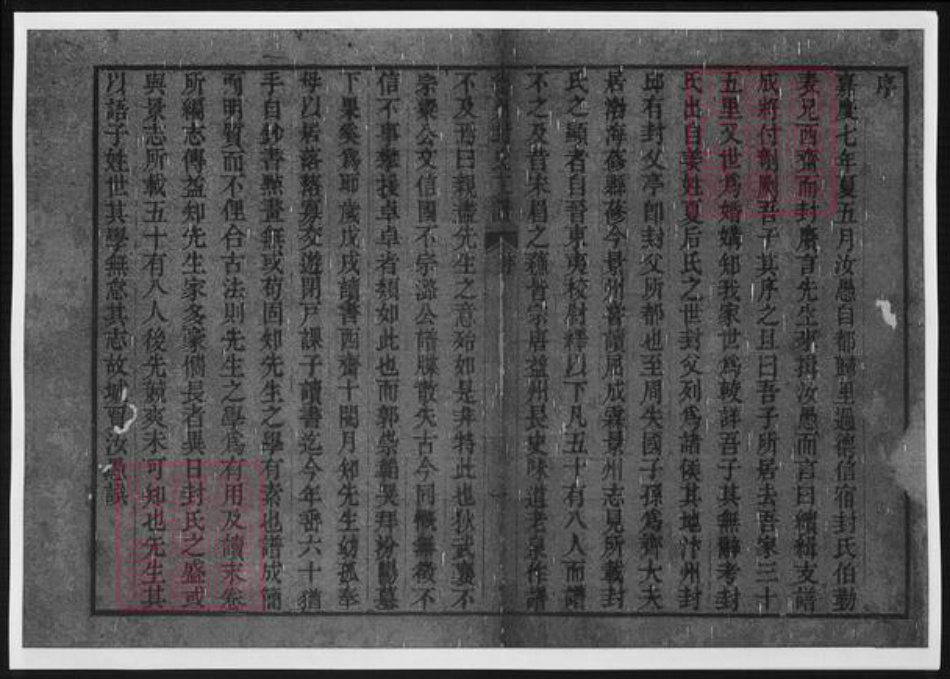 序
嘉慶七年夏五月汝愚自都歸里過德信宿封氏伯勤
表兄西齋而封廣言先生來揖汝愚而言曰續緝支譜
成將付剞劂吾子其序之且曰吾子所居去吾家三十
五里又世為婚媾知我家世為較詳吾子其無辭考封
氏出自姜姓夏后氏之世封父列為諸侯其地汴州封
邱有封父亭即封父所都也至周失國子孫為齊大夫
居渤海蓚縣蓚今景州嘗讀屈成霖景州志見所載封
氏之顯者自晉東夷校尉釋以下凡五十有八人而譜
不之及昔宋眉之蘇皆宗唐益州長史味道老泉作譜
不及焉曰親盡先生之意殆如是非特此也狄武襄不
宗梁公文信國不宗潞公譜牒散失古今同慨無徵不
信不事攀援卓卓者類如此也而郭崇韜哭拜汾陽墓
下果奚為耶歲戊戌讀書西齋十閱月知先生幼孤奉
母以居落落寡交遊閉戶課子讀書迄今年晉六十猶
手自鈔書點畫無或苟固知先生之學有素也譜成簡
而明質而不俚合古法則先生之學為有用及讀末卷
所編志傳益知先生家多豪儁長者異日封氏之盛或
與景志所載五十有八人後先競爽未可知也先生其
以語子姓世其學無怠其志故城賈汝愚譔